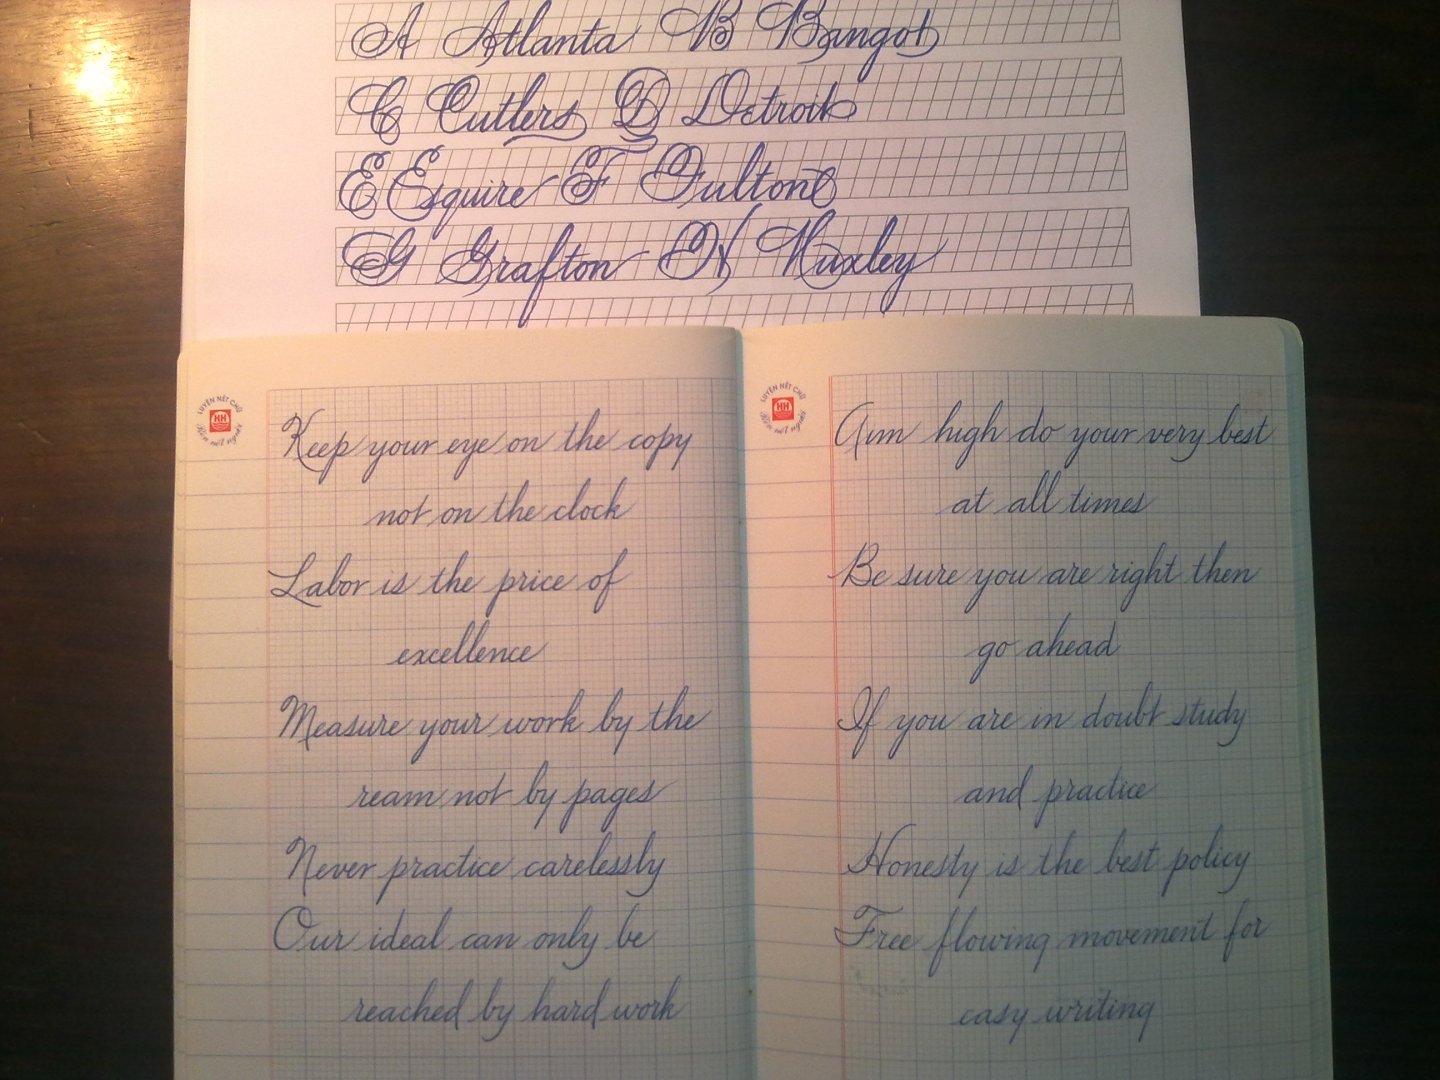 A Atlanta B Bangor
C Cutlers D Detroit
E Esquire F Fulton
G Grafton H Huxley
LUYỆN NÉT CHỮ
HH
Rèn nết người
Keep your eye on the copy
not on the clock
Labor is the price of
excellence
Measure your work by the
ream not by pages
Never practice carelessly
Our ideal can only be
reached by hard work
LUYỆN NÉT CHỮ
HH
Rèn nết người
Aim high do your very best
at all times
Be sure you are right then
go ahead
If you are in doubt study
and practice
Honesty is the best policy
Free flowing movement for
easy writing